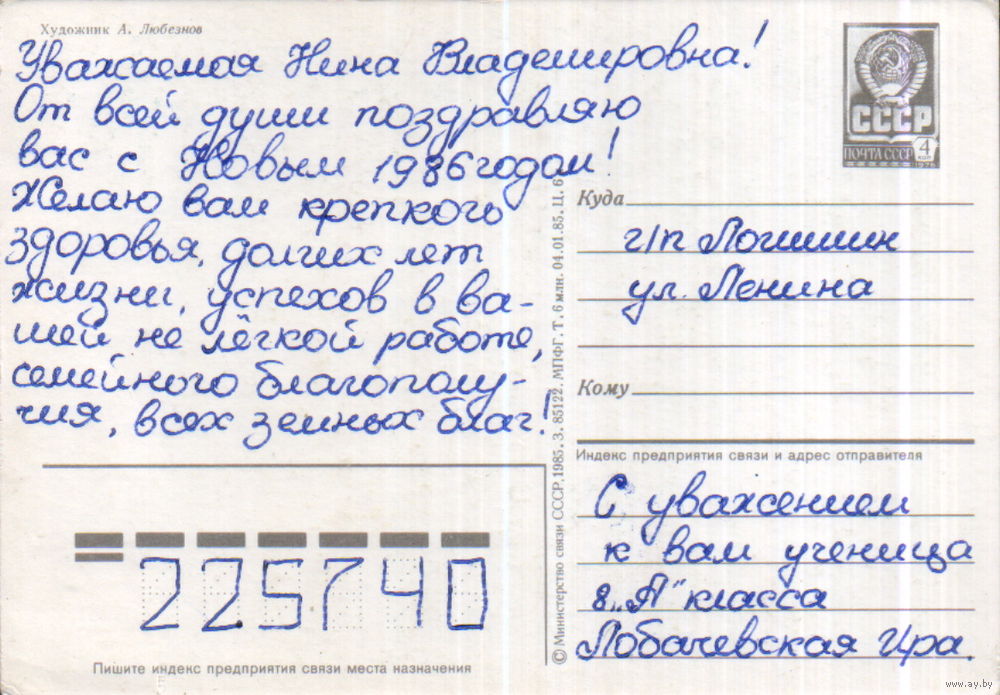 Художник А. Любезнов
Уважаемая Нина Владемировна!
От всей души поздравляю
вас с Новым 1986 годом!
Желаю вам крепкого
здоровья, долгих лет
жизни, успехов в ва-
шей не лёгкой работе,
семейного благополу-
чия, всех земных благ!
СССР
ПОЧТА СССР
4
КОП
1976
Куда
г/п Логишин
ул. Ленина
Кому
Индекс предприятия связи и адрес отправителя
С уважением
к вам ученица
8 „А" класса
Лобачевская Ира.
© Министерство связи СССР, 1985. З. 85122. МПФГ. Т. 6 млн. 04.01.85. Ц. 6
225740
Пишите индекс предприятия связи места назначения
www.ay.by